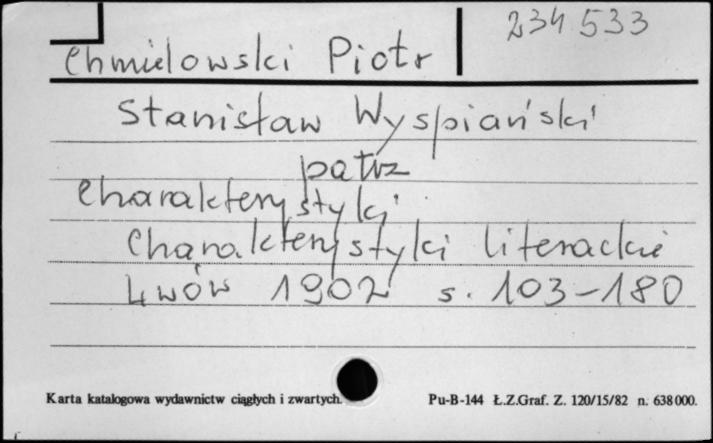 234533
Chmielowski Piotr
Stanisław Wyspiański
patrz
Charakterystyki
Charakterystyki literackie
Lwów 1902 s. 103-180
Karta katalogowa wydawnictw ciągłych i zwartych. Pu-B-144 Ł.Z.Graf. Z. 120/15/82 n. 638000.